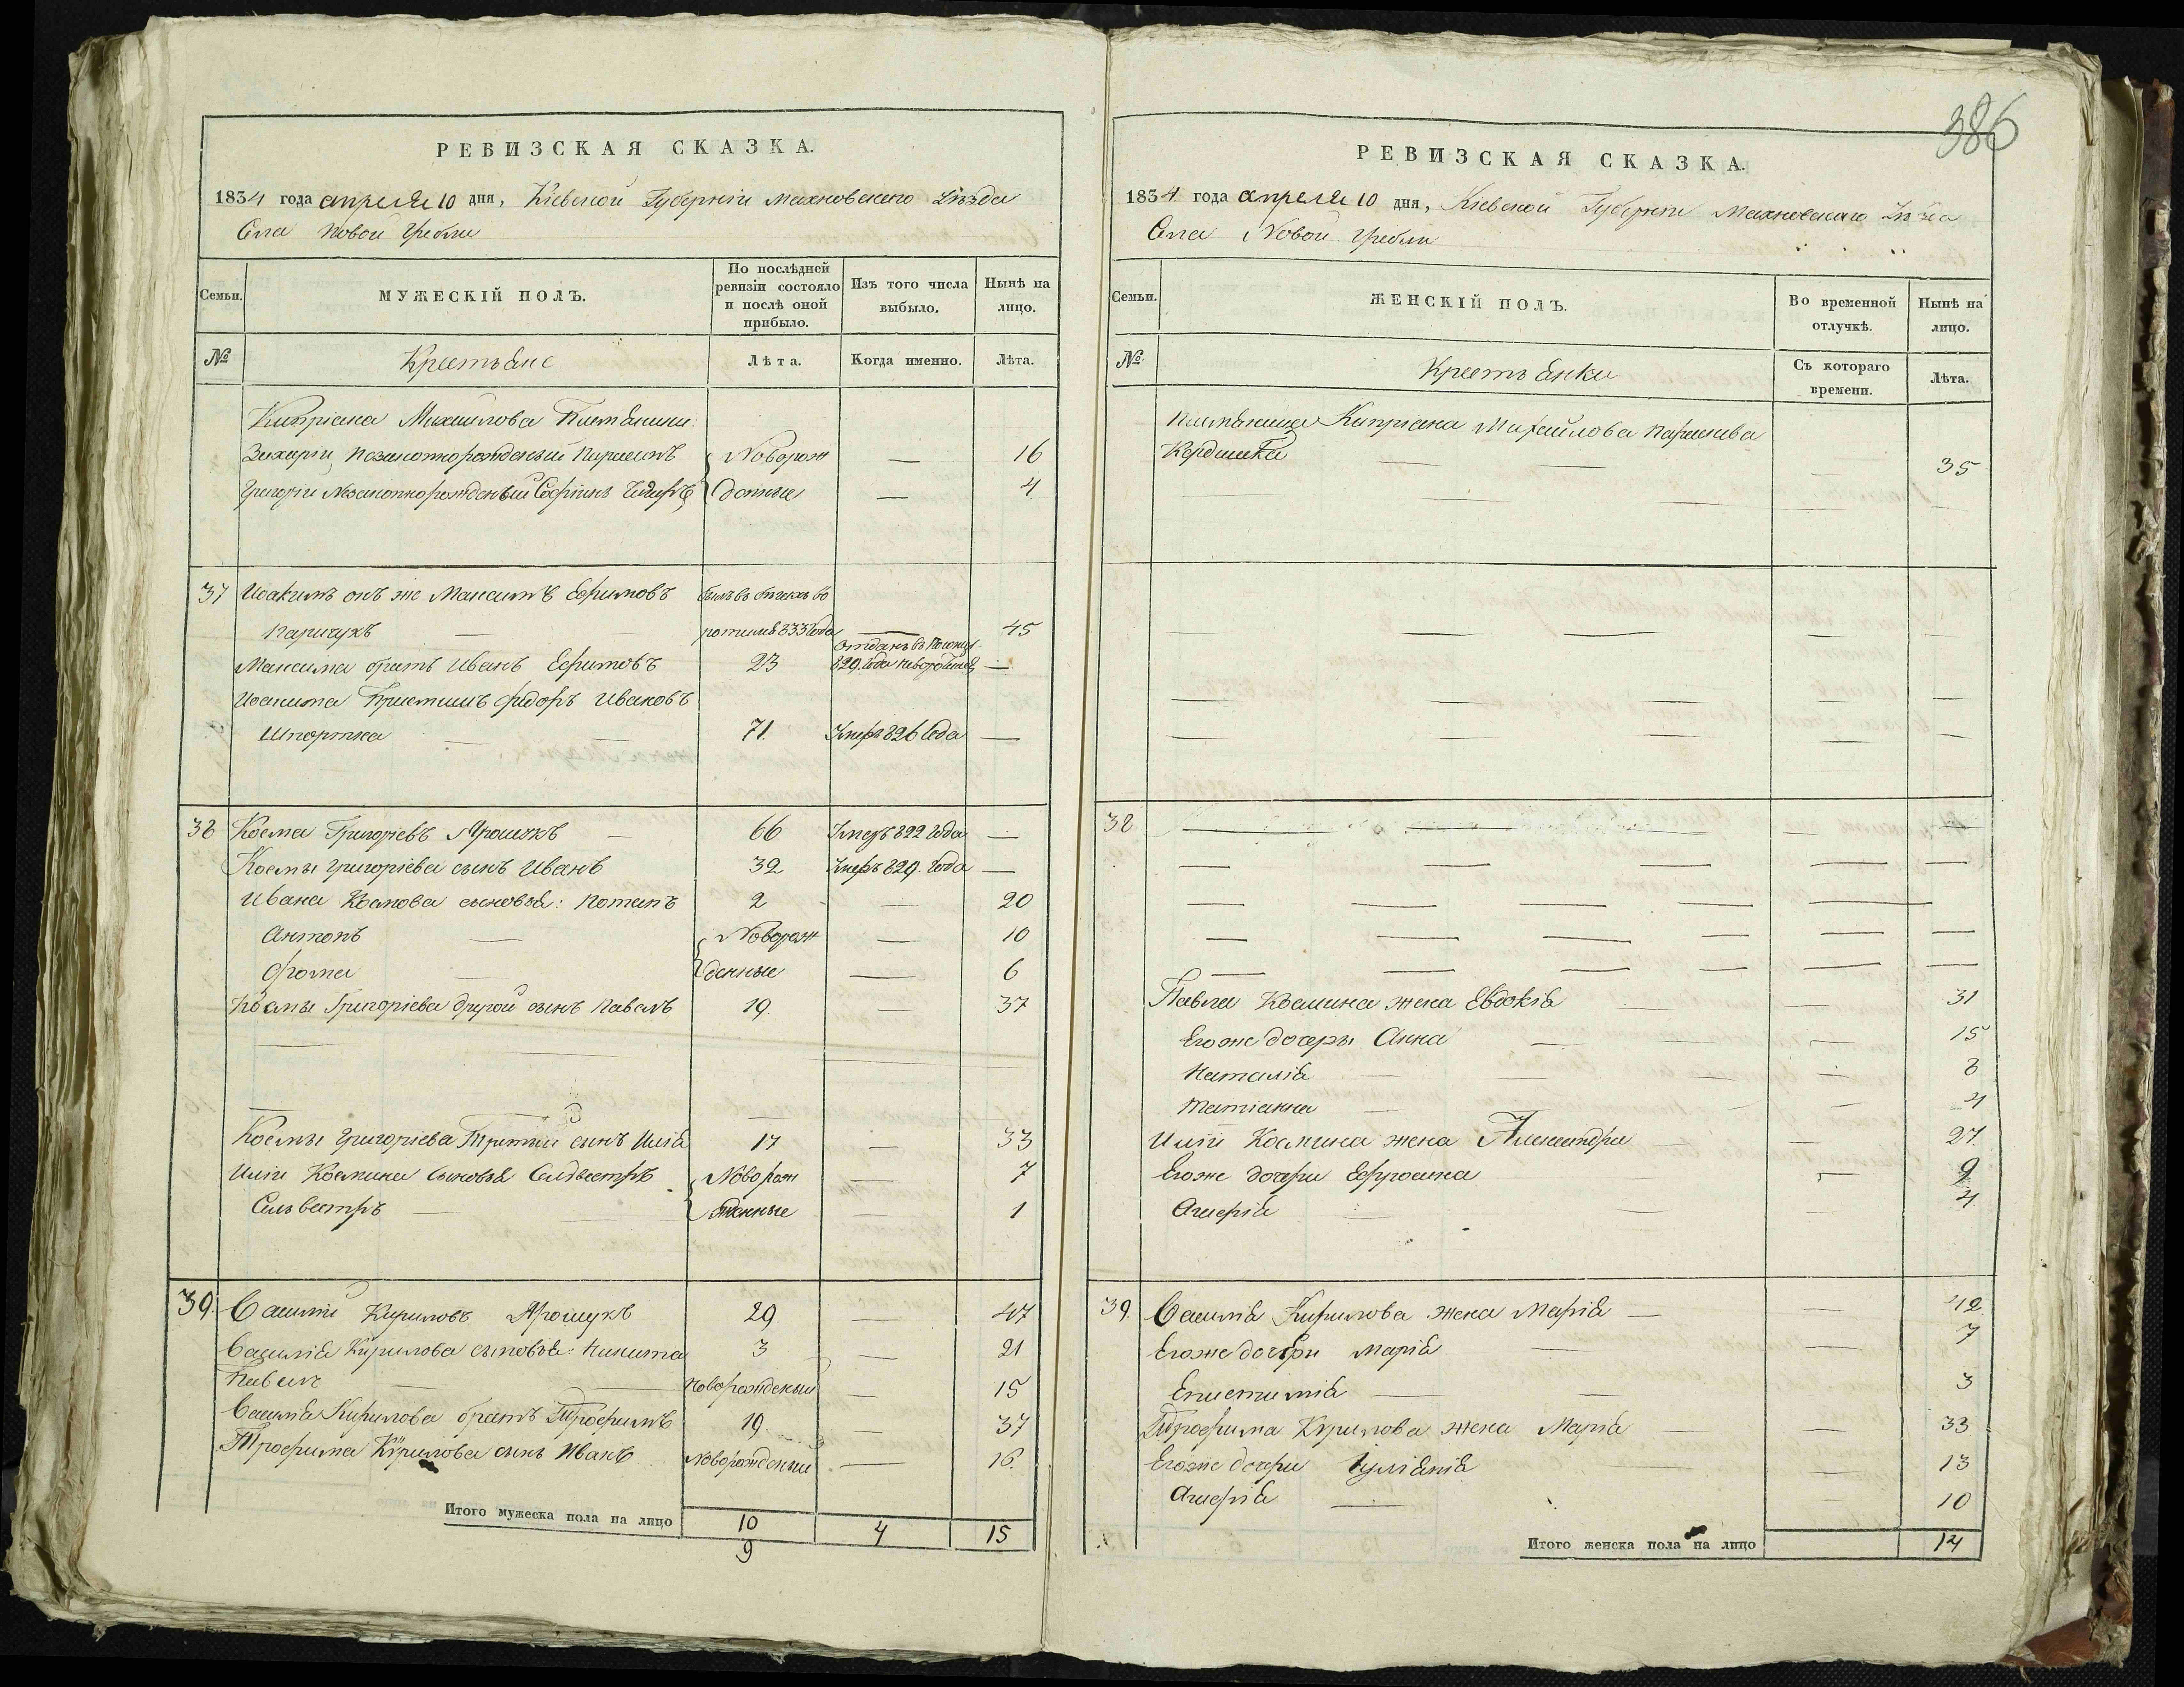 РЕВИЗСКАЯ СКАЗКА.
1834 года апреля 10 дня, Кіевской Губерніи Махновского Уѣзда
Села Новой Гребли
Семьи. МУЖЕСКІЙ ПОЛЪ. По послѣдней ревизіи состояло и послѣ оной прибыло. Изъ того числа выбыло. Нынѣ на лицо.
№ Крестьяне Лѣта. Когда именно. Лѣта.
Кипріана Михайлова
Захарій незаконнорожденый Новорож — 16
Григорій незаконнорожденый денные — 4
37 Иоакимъ онъ же Максимъ Ефимовъ былъ въ бѣгахъ во
Паригукъ — ротился 833 года — 45
Максима братъ Иванъ Ефимовъ 23 829 года —
Иоакима Федоръ Ивановъ
Шпортка — 71. Умеръ 826 года —
38 Косма Григорьевъ Ярощукъ — 66 Умеръ 822 года —
Космы Григорьева сынъ Иванъ 32 Умеръ 829. года —
Ивана Космова сыновья: Потапъ 2 — 20
Антонъ — Новорож — 10
Фома — денные — 6
Космы Григорьева другой сынъ Павелъ 19. — 37
Космы Григорьева третій сынъ Илія 17 — 33
Иліи Космина сыновья Силвестръ Новорож — 7
Сильвестръ — денные — 1
39. Василій Кириловъ Ярощукъ 29 — 47
Василія Кирилова сыновья: Никита 3 — 21
Павелъ — новорожденый — 15
Василія Кирилова братъ Трофимъ 19 — 37
Трофима Кирилова сынъ Иванъ новорожденый — 16.
Итого мужеска пола на лицо 10 4 15
9
386
РЕВИЗСКАЯ СКАЗКА.
1834 года апреля 10 дня, Кіевской Губерніи Махновского Уѣзда
Села Новой Гребли
Семьи. ЖЕНСКІЙ ПОЛЪ. Во временной отлучкѣ. Нынѣ на лицо.
№. Крестьянки Съ котораго времени. Лѣта.
Кипріана Михайлова
— — — 35
38
Павла Космина жена Евдокія — — 31
Егоже дочеры Анна — — 15
Наталія — — 8
Татіанна — — 4
Иліи Космина жена Александра — 27.
Егоже дочери Ефросина — 9
— — 4
39. Василія Кирилова жена Марія — — 42
Егоже дочери Марія — — 7
Епистимія — — 3
Трофима Кирилова жена Марія — — 33
Егоже дочери Іуліянія — 13
— — 10
Итого женска пола на лицо 14